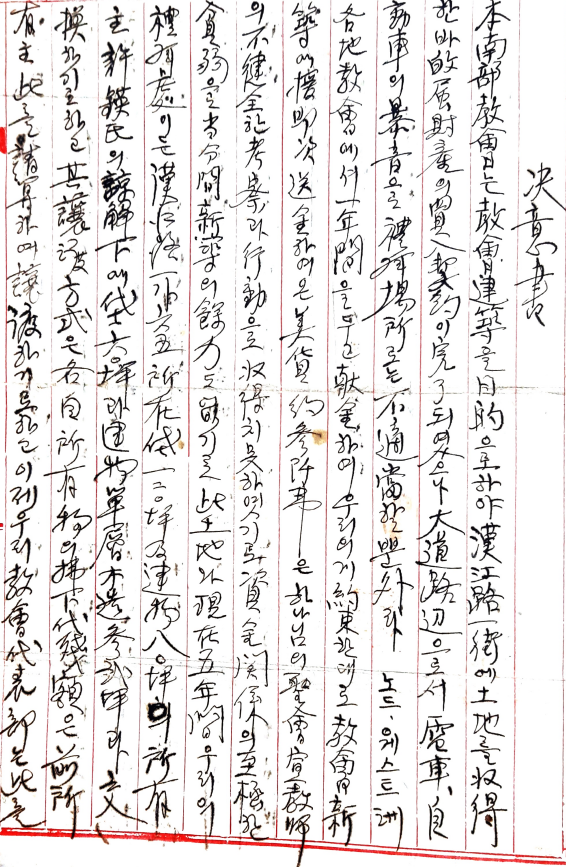 決意書
本南部敎會는 敎會建築을 目的으로하야 漢江路一街에 土地를 収得
한바 敀屬財產의 買入契約이 完了되여스나 大道路辺으로서 電車, 自
動車의 暴音으로 禮拜場所로는 不適當할뿐外라 노드, 웨스트 레
各地敎會에서 一年間을 두고 献金하여 우리의게 約束한대로 敎會日新
築에 援助次 送金하여온 美貨 約參阡弗은 하나님의 聖會 宣敎師
의 不健全한 考察과 行動으로 収得치못하엿기로 資金関係의 至極한
貧弱으로 当分間 新築의 餘力도 없기로 此土地와 現在 五年間 우리의
禮拜處이든 漢江路一街 五 所在 垈一二〇坪 及 建物 八〇坪의 所有
主 許鍈氏의 諒解下에 垈 六〇坪과 建物 單層木造 參貳坪과 交
換하기로하고 其讓渡方式은 各自 所有物의 拂下代残額은 前所
有主 此를 淸算하여 讓渡하기로하고 이제 우리 敎會代表部는 此를